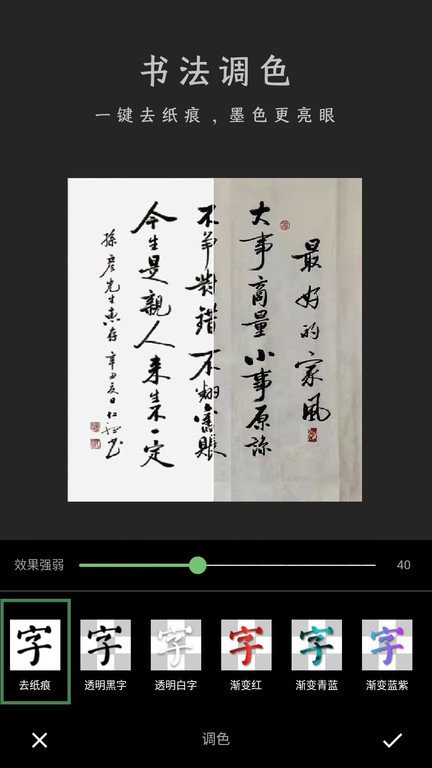 书法调色
一键去纸痕，墨色更亮眼
最好的家风
大事商量小事原谅
不争對錯不翻舊賬
今生是親人来生不一定
孫彦先生惠存辛丑
效果强弱
40
字
去纸痕
字
透明黑字
字
透明白字
字
渐变红
字
渐变青蓝
字
渐变蓝紫
调色